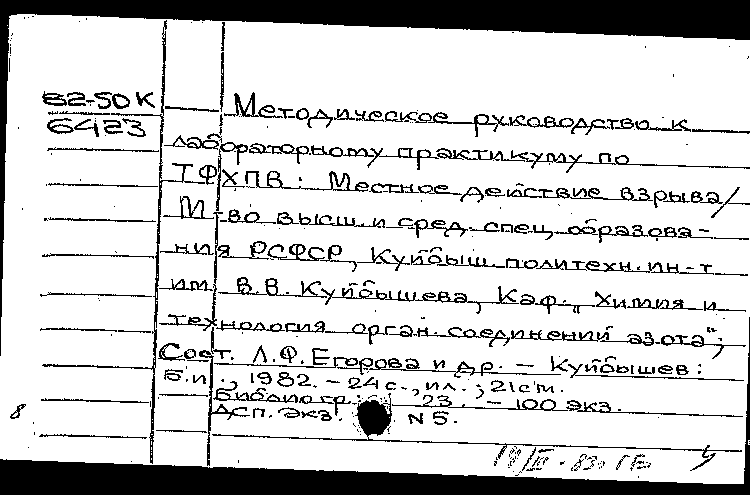 82-50К
6423
Методическое руководство к
лабораторному практикуму по
ТФХПВ: Местное действие взрыва/
М-во высш. и сред. спец. образова-
ния РСФСР, Куйбыш. политехн. ин-т
им. В.В. Куйбышева, Каф. „Химия и
технология орган. соединений азота";
Сост. Л.Ф. Егорова и др. – Куйбышев:
Б.и., 1982. – 24 с., ил.; 21 см.
Библиогр.: с. 23. – 100 экз.
ДСП. Экз. N 5.
8
18/III-83.